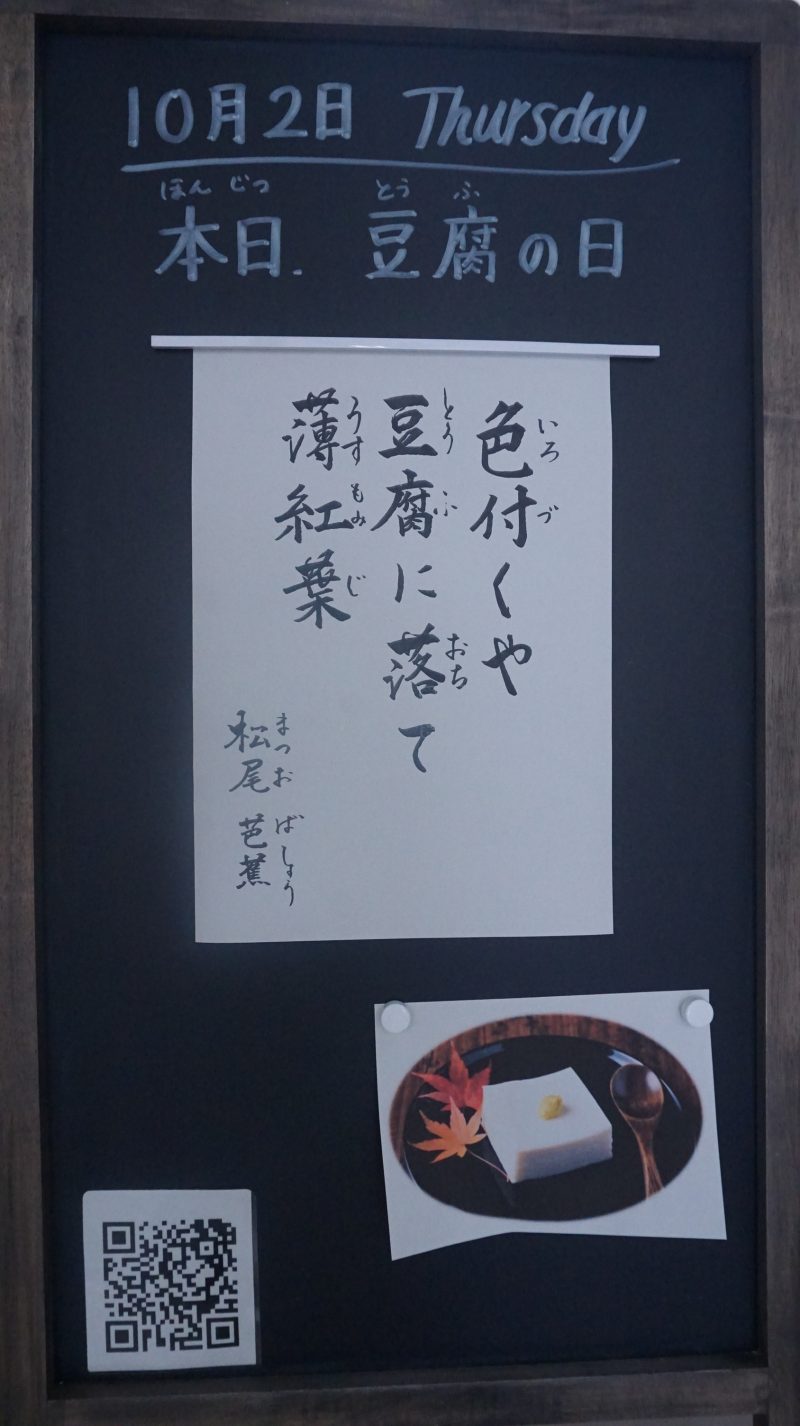 10月2日 Thursday
ほんじつ とうふ
本日. 豆腐の日
色付くや
いろづ
豆腐に落て
とうふ おち
薄紅葉
うすもみじ
松尾芭蕉
まつお ばしょう